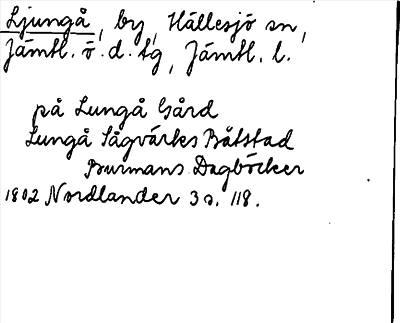 Ljungå, by, Hällesjö sn,
Jämtl. ö. d. tg, Jämtl. l.
på Lungå Gård
Lungå Sågvärkes Båtstad
Burmans Dagböcker
1802 Nordlander 3 s. 118.